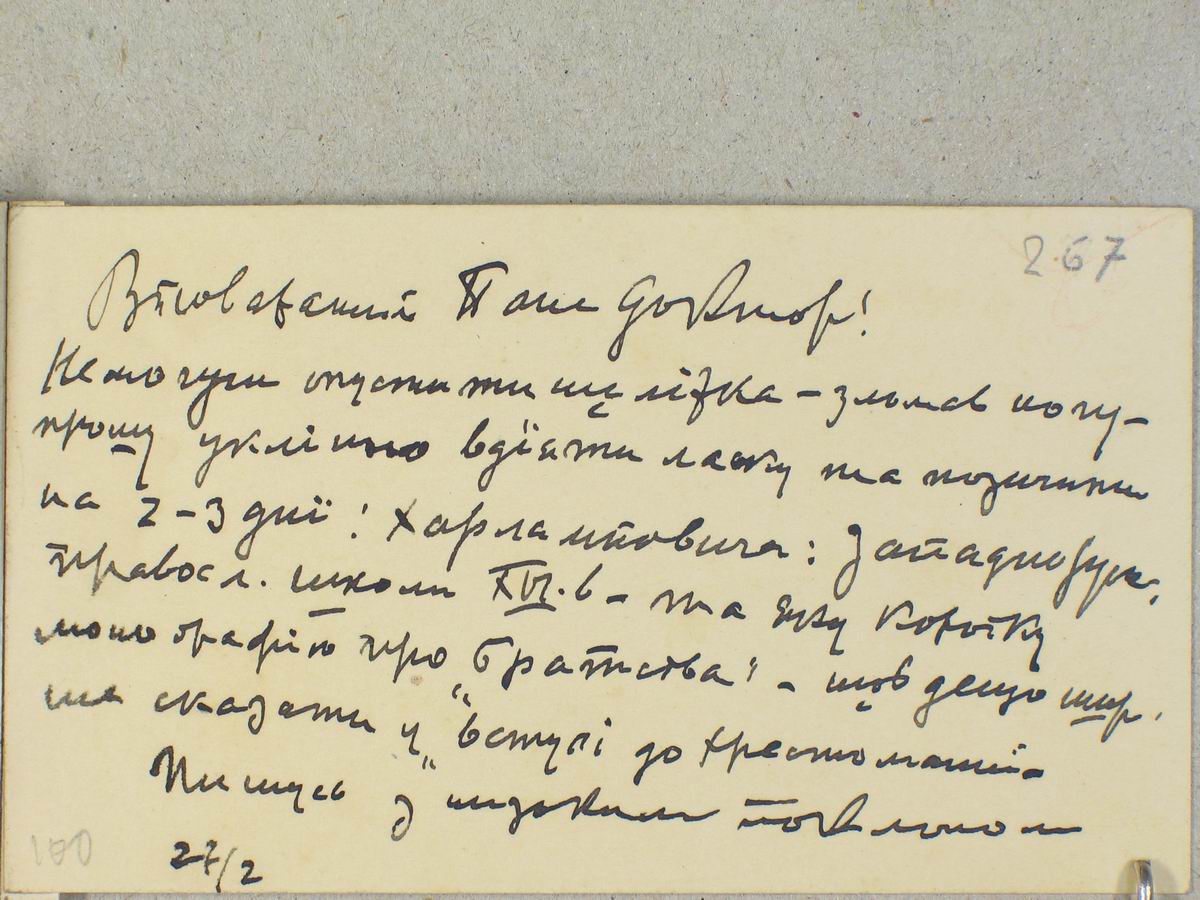 267
Вповажаний Пане Доктор!
Не могучи опустити ще ліжка – зломав ногу –
прошу уклінно вдіяти ласку та позичити
на 2–3 дні: Харламповича: Западнорусс.
правосл. школи XVI. в – та яку коротку
монографію про „братства" – щоб дещо шир.
ше сказати у „вступі до хрестоматії–
Пишусь з низьким поклоном
27/2
100